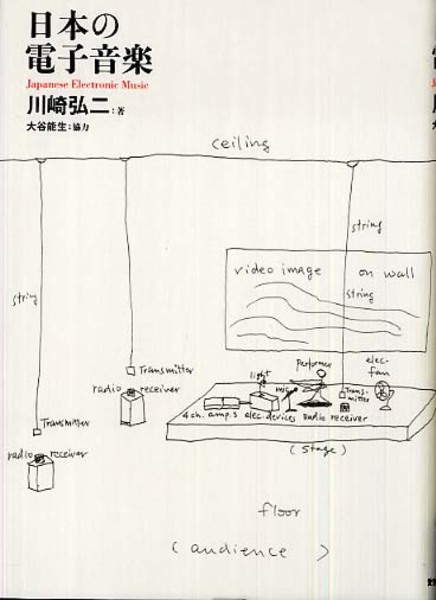 日本の
電子音楽
Japanese Electronic Music
川崎弘二:著
大谷能生:協力
ceiling
string
string
video image on wall
string
elec-
fan
performer
light
mic
Trans-
mitter
4ch. amp.s elec. devices Radio receiver
(stage)
Transmitter
radio receiver
Transmitter
radio receiver
floor
(audience)